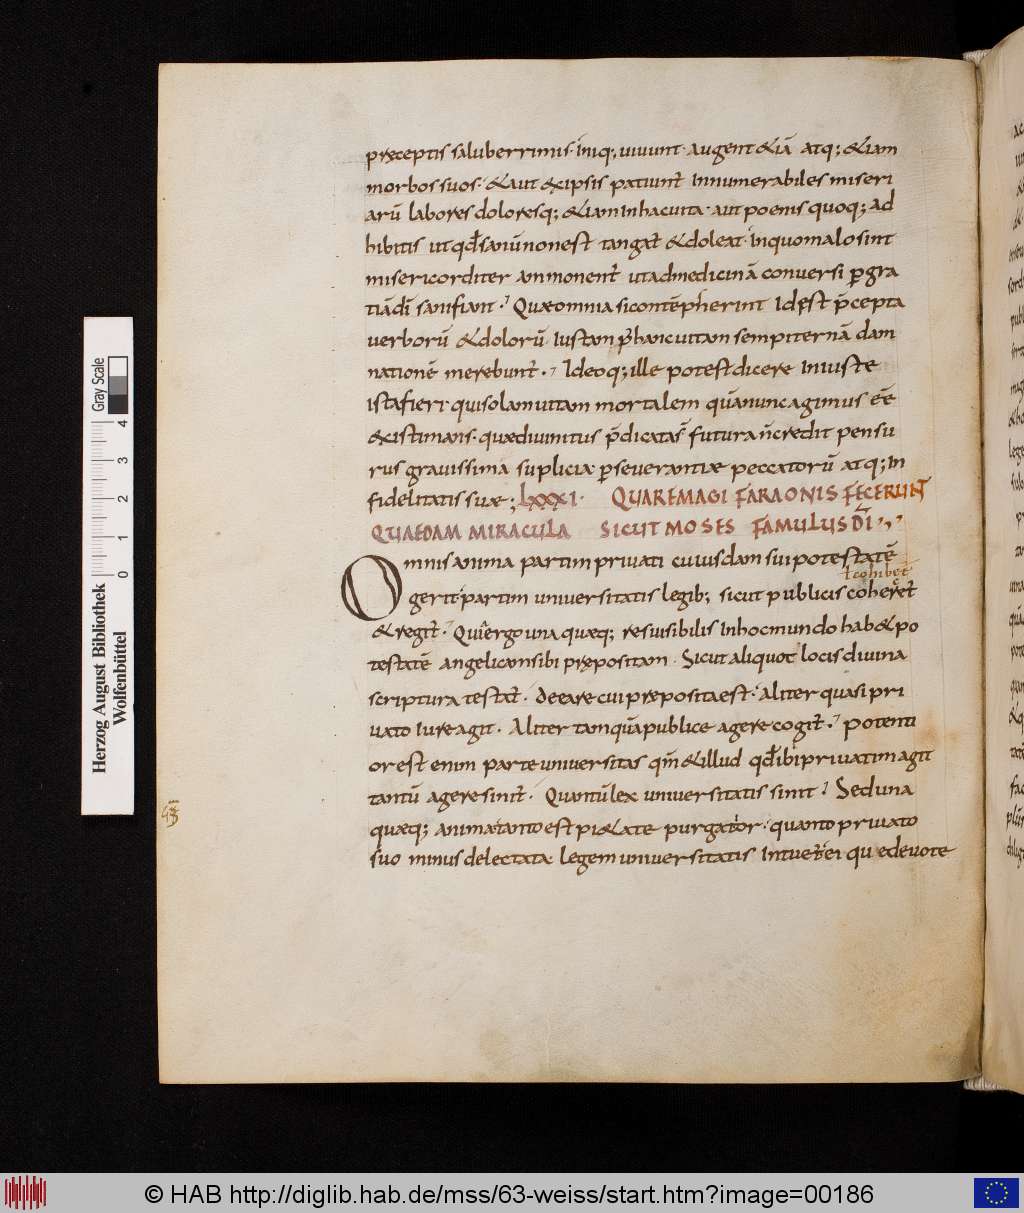 pręceptis saluberrimis· iniq; uiuunt· augent &iā atq; &iam
morbos suos· &aut exipsis patiunt̄ innumerabiles miseri
arū labores doloresq; &iam inhacuita· aut poenis quoq; ad
hibitis ut qđ sanū non est tangat̄ & doleat· in quo malo sint
misericorditer ammonent̄ ut ad medicinā conversi ꝑ gra
tiā dī sanifiant· Quae omnia si contēpserint Id est p̄cepta
uerborū & dolorū iustam p̱ hanc uitam sempiternā dam
nationē merebunt̄· Ideoq; ille potest dicere iniuste
ista fieri qui solam uitam mortalem quā nunc agimus eē
existimans· quae diuinitus p̄dicatas futura ñ credit pensu
rus gravissima supliciae ꝑseverantiae peccatorū atq; in
fidelitatis suae; LXXXI· QUARE MAGI FARAONIS FECERUNT
QUAEDAM MIRACULA SICUT MOSES FAMULUS DĪ·,·
Omnis anima partim privati cuiusdam sui potestatē
ł cohibet̄
gerit· partim universitatis legib; sicut publicis coheret̄
& regit̄· Quīergo una quaeq; res visibilis in hoc mundo hab& po
testatē angelicam sibi prepositam· Sicut aliquot locis divina
scriptura testat̄· de eare cui preposita est· aliter quasi pri
uato iure agit· Aliter tamquā publice agere cogit̄· potenti
or est enim parte universitas qm̄ & illud qđ ibi privatim agit
tantū agere sinit̄· Quantū lex universitatis sinit Sed una
quaeq; anima tanto est pi&ate purgatior· quanto privato
suo minus delectata legem universitatis intuet̄ ei qu e devote
Herzog August Bibliothek
Wolfenbüttel
Gray Scale
0 1 2 3 4
© HAB http://diglib.hab.de/mss/63-weiss/start.htm?image=00186